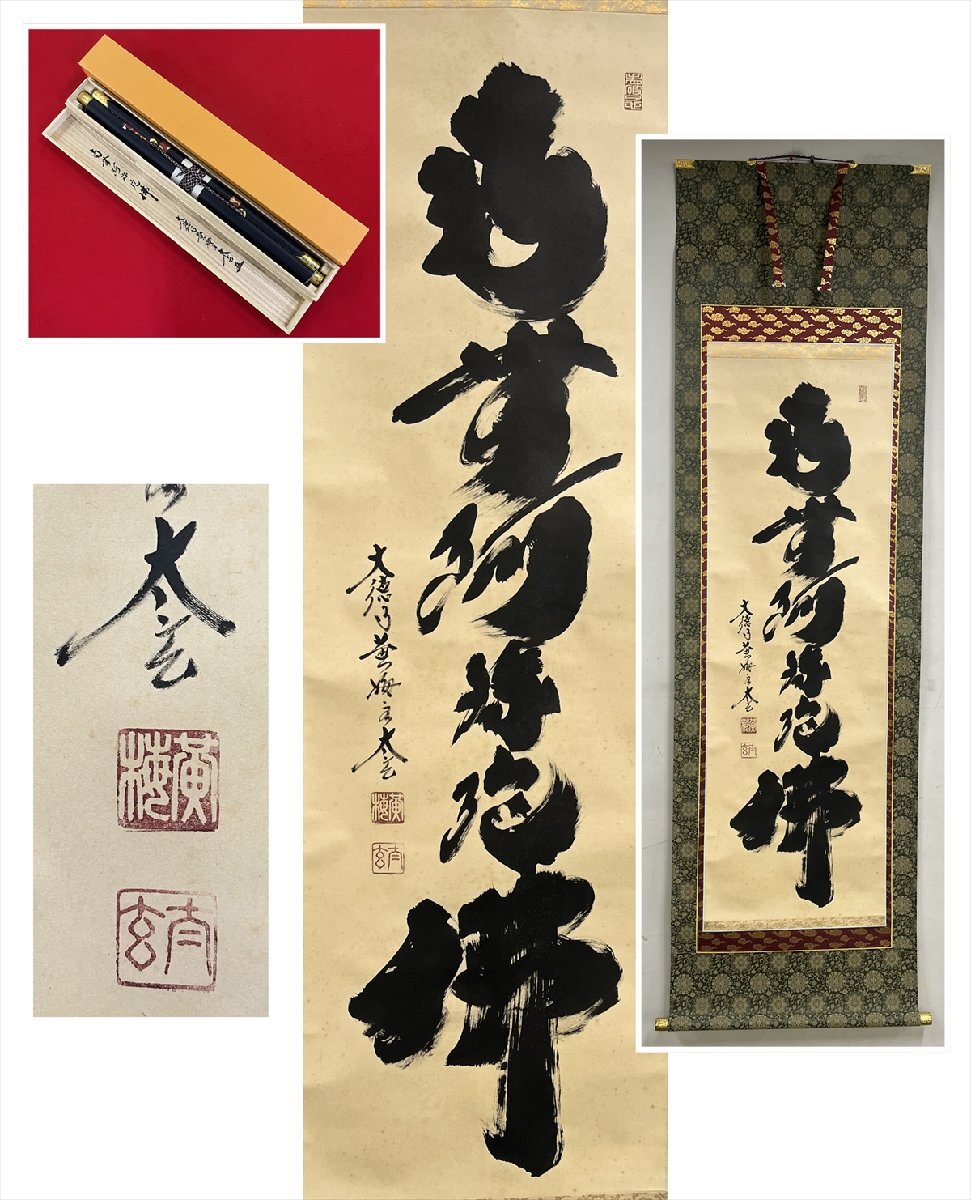 南無阿弥陀佛
大徳寺黄梅主太玄
黄梅
太玄
南無阿弥陀佛
大徳寺黄梅主太玄
黄梅
太玄
太玄
黄梅
太玄
南無阿弥陀佛